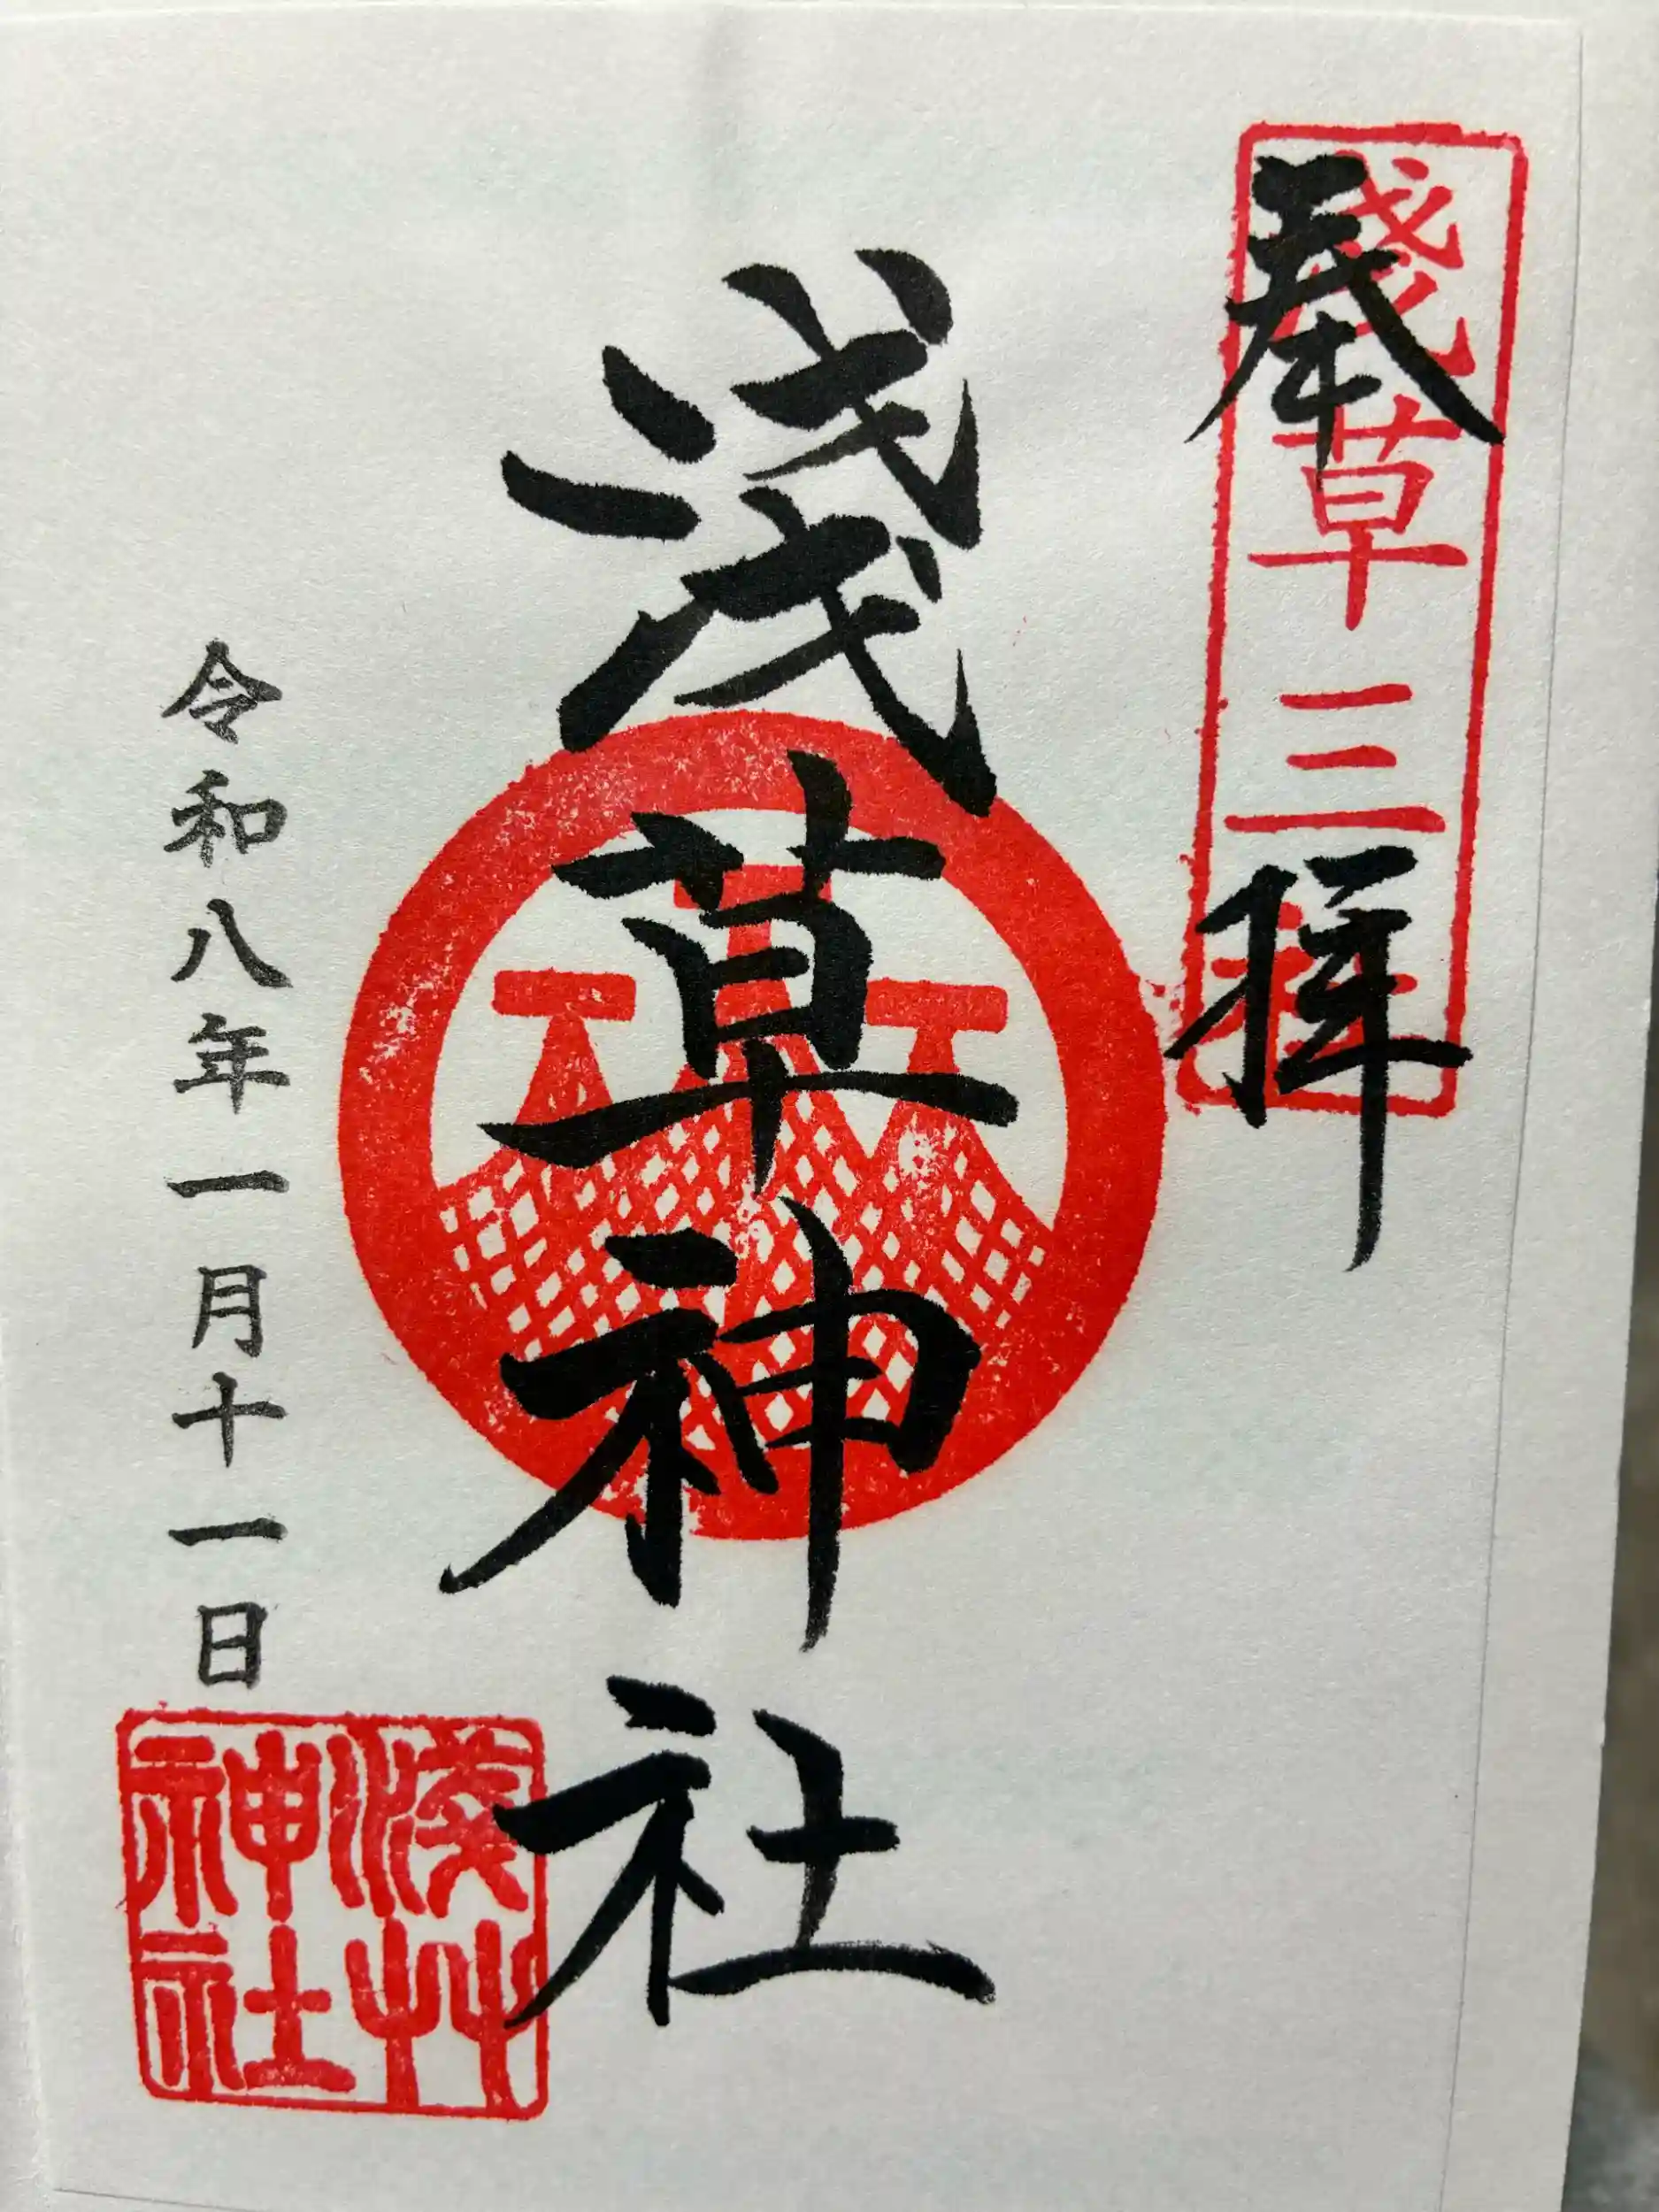 奉拝
淺草三社
淺草神社
令和八年一月十一日
淺艸
神社